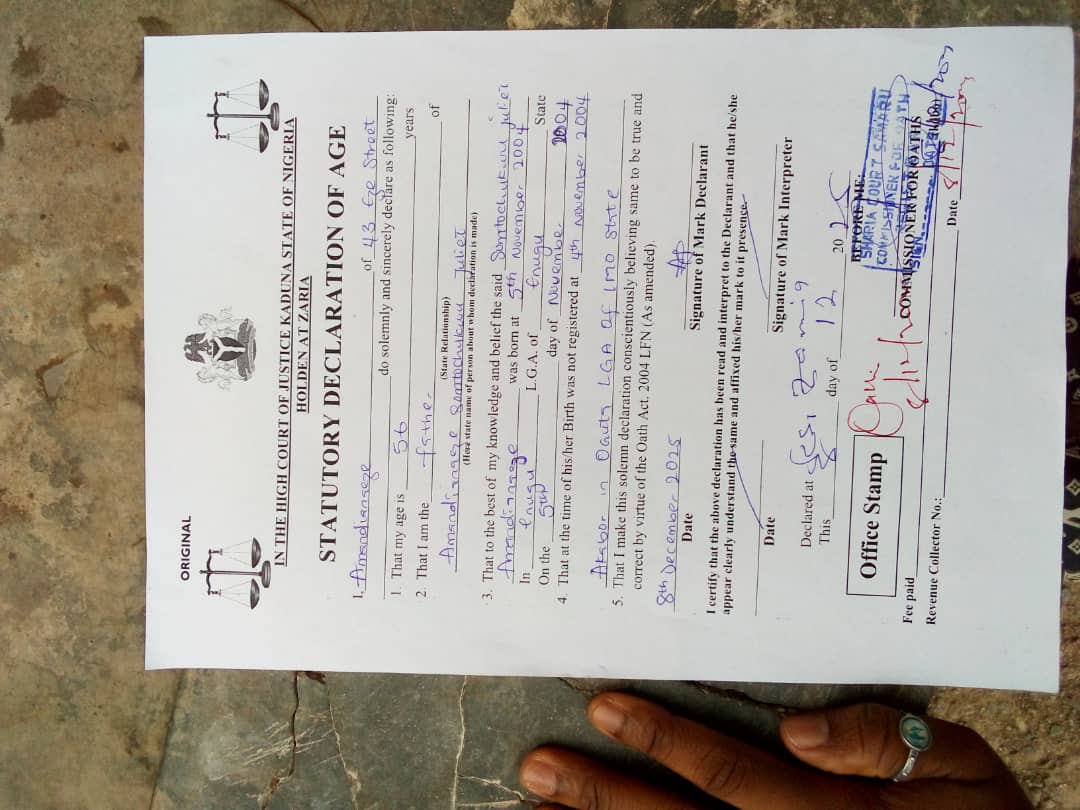 ORIGINAL
IN THE HIGH COURT OF JUSTICE KADUNA STATE OF NIGERIA
HOLDEN AT ZARIA
STATUTORY DECLARATION OF AGE
I, Amandianaeze of 43 Eze Street
do solemnly and sincerely declare as following:
1. That my age is 56 years
2. That I am the father of
(State Relationship)
Amandianaeze Somtochukwu Juliet
(Here state name of person about whom declaration is made)
3. That to the best of my knowledge and belief the said Somtochukwu juliet
Amandianaeze was born at 5th November 2004
In Enugu L.G.A. of Enugu State
On the 5th day of November 2004
4. That at the time of his/her Birth was not registered at 4th November 2004
Akabor in Oguta LGA of IMO State
5. That I make this solemn declaration conscientiously believing same to be true and
correct by virtue of the Oath Act, 2004 LFN (As amended).
8th December 2025
Date
Signature of Mark Declarant
I certify that the above declaration has been read and interpret to the Declarant and that he/she
appear clearly understand the same and affixed his/her mark to it presence.
Date
Signature of Mark Interpreter
Declared at
This day of 12 2025
BEFORE ME:
SHARIA COURT SAMARU
COMMISSIONER FOR OATH
SIGN DATE
Office Stamp
COMMISSIONER FOR OATHS
Fee paid
Revenue Collector No.: Date